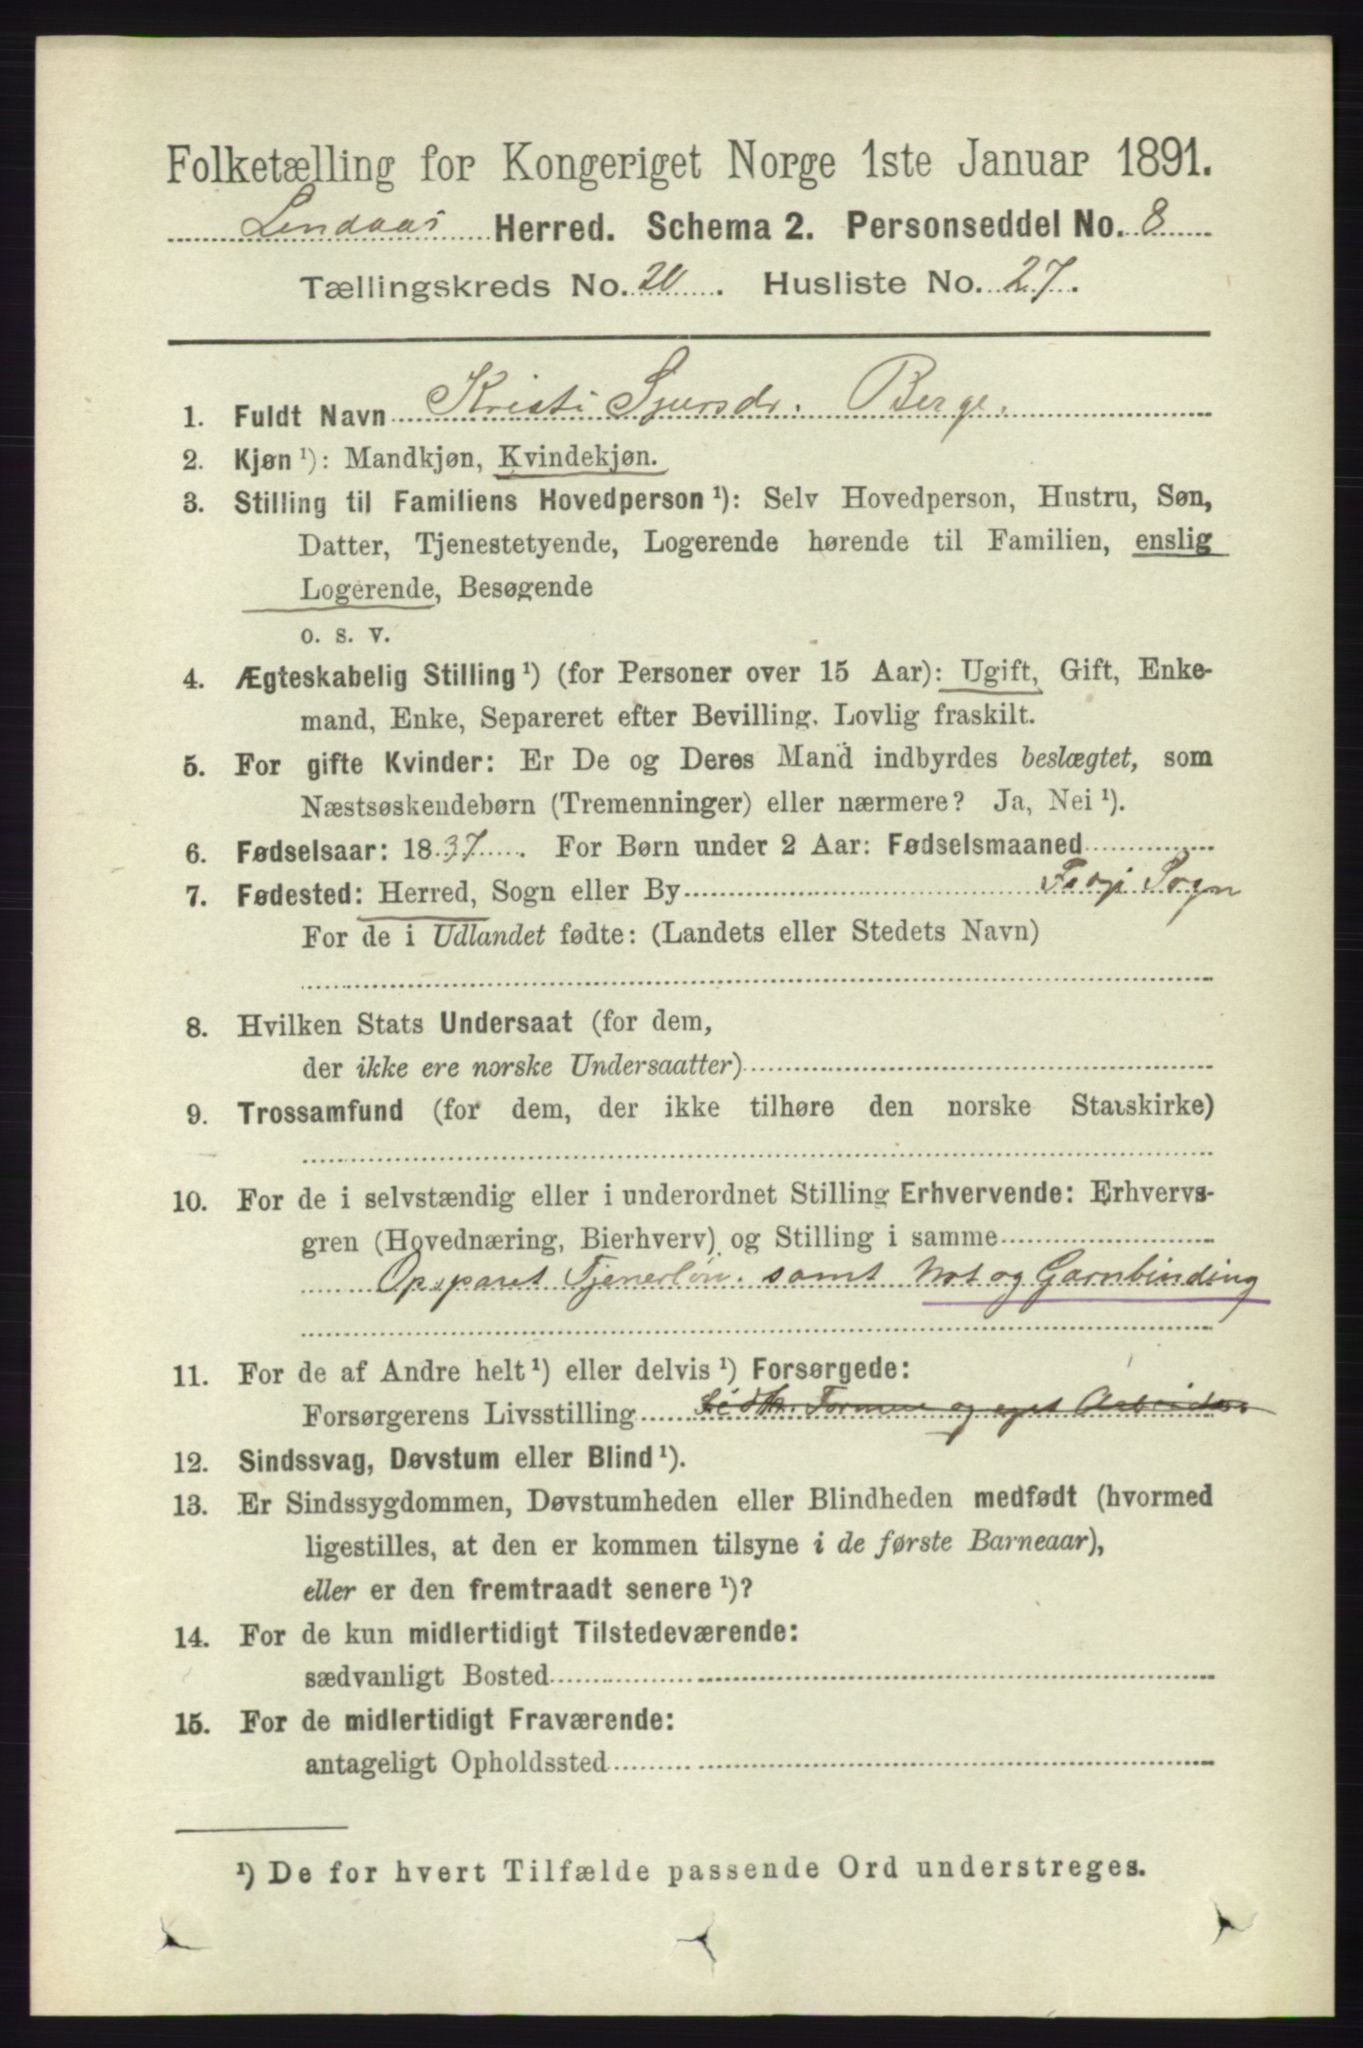 Folketælling for Kongeriget Norge 1ste Januar 1891.
Lindaas Herred. Schema 2. Personseddel No. 8
Tællingskreds No. 20. Husliste No. 27.
1. Fuldt Navn Kristi Sjursdr. Berge.
2. Kjøn ¹): Mandkjøn, Kvindekjøn.
3. Stilling til Familiens Hovedperson ¹): Selv Hovedperson, Hustru, Søn,
Datter, Tjenestetyende, Logerende hørende til Familien, enslig
Logerende, Besøgende
o. s. v.
4. Ægteskabelig Stilling ¹) (for Personer over 15 Aar): Ugift, Gift, Enke-
mand, Enke, Separeret efter Bevilling. Lovlig fraskilt.
5. For gifte Kvinder: Er De og Deres Mand indbyrdes beslægtet, som
Næstsøskendebørn (Tremenninger) eller nærmere? Ja, Nei ¹).
6. Fødselsaar: 1837. For Børn under 2 Aar: Fødselsmaaned
7. Fødested: Herred, Sogn eller By Sogn
For de i Udlandet fødte: (Landets eller Stedets Navn)
8. Hvilken Stats Undersaat (for dem,
der ikke ere norske Undersaatter)
9. Trossamfund (for dem, der ikke tilhøre den norske Statskirke)
10. For de i selvstændig eller i underordnet Stilling Erhvervende: Erhvervs-
gren (Hovednæring, Bierhverv) og Stilling i samme
Opsparet Tjenerløn. samt Not og Garnbinding
11. For de af Andre helt ¹) eller delvis ¹) Forsørgede:
Forsørgerens Livsstilling og eget
12. Sindssvag, Døvstum eller Blind ¹).
13. Er Sindssygdommen, Døvstumheden eller Blindheden medfødt (hvormed
ligestilles, at den er kommen tilsyne i de første Barneaar),
eller er den fremtraadt senere ¹)?
14. For de kun midlertidigt Tilstedeværende:
sædvanligt Bosted
15. For de midlertidigt Fraværende:
antageligt Opholdssted
¹) De for hvert Tilfælde passende Ord understreges.